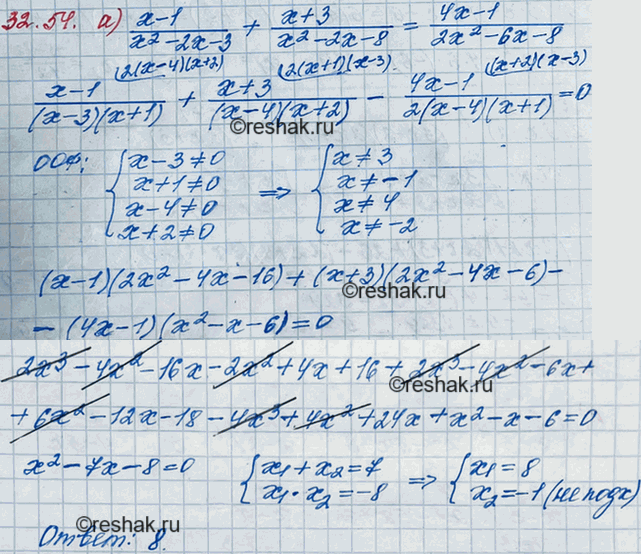 32.54. а) (x-1)/(x²-2x-3) + (x+3)/(x²-2x-8) = (4x-1)/(2x²-6x-8)
(2(x-4)(x+2) (2(x+1)(x-3) ((x+2)(x-3)
(x-1)/((x-3)(x+1)) + (x+3)/((x-4)(x+2)) - (4x-1)/(2(x-4)(x+1)) = 0
©reshak.ru
ООФ: { x-3≠0 ⇒ { x≠3
x+1≠0 x≠-1
x-4≠0 x≠4
x+2≠0 x≠-2
(x-1)(2x²-4x-16)+(x+3)(2x²-4x-6)-
©reshak.ru
-(4x-1)(x²-x-6)=0
2x³-4x²-16x-2x²+4x+16+2x³-4x²-6x+
+6x²-12x-18-4x³+4x²+24x+x²-x-6=0
x²-7x-8=0 { x₁+x₂=7 ⇒ { x₁=8
x₁·x₂=-8 x₂=-1 (не подх)
©reshak.ru
Ответ: 8.